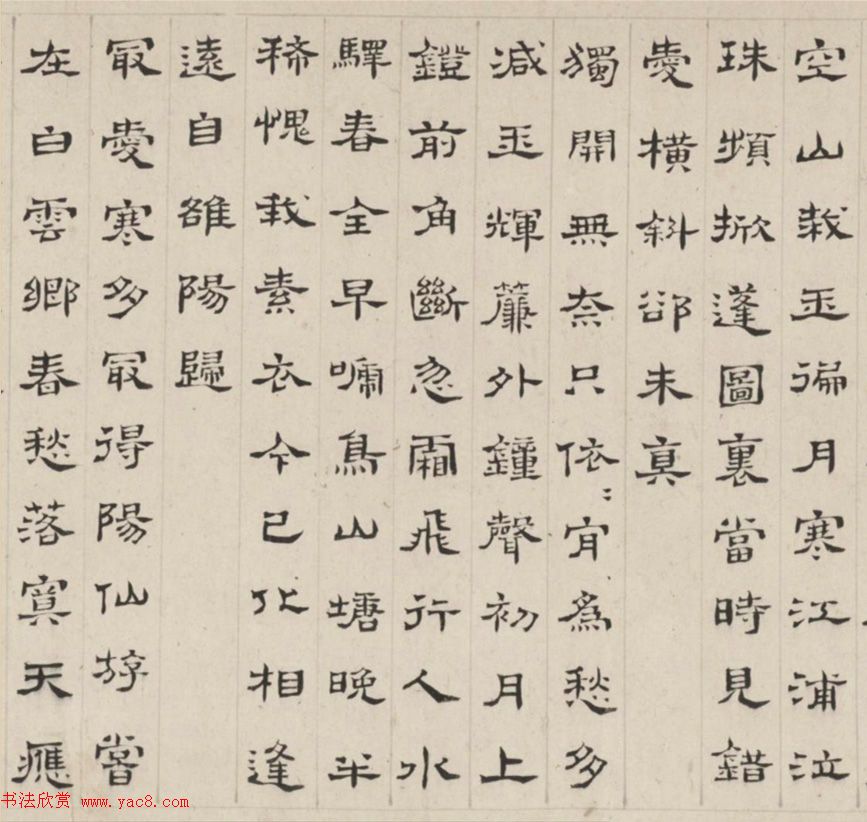 空山栽玉徧月寒江浦泣
珠頻掀蓬圖裏當時見錯
愛橫斜卻未真
獨開無奈只依〻宜爲愁多
減玉輝簾外鐘聲初月上
鐙前角斷忽霜飛行人水
驛春全早嘯鳥山塘晚半
稀愧我素衣今已化相逢
遠自雒陽歸
最愛寒多最得陽仙遊嘗
在白雲鄉春愁落寞天應
书法欣赏 www.yac8.com